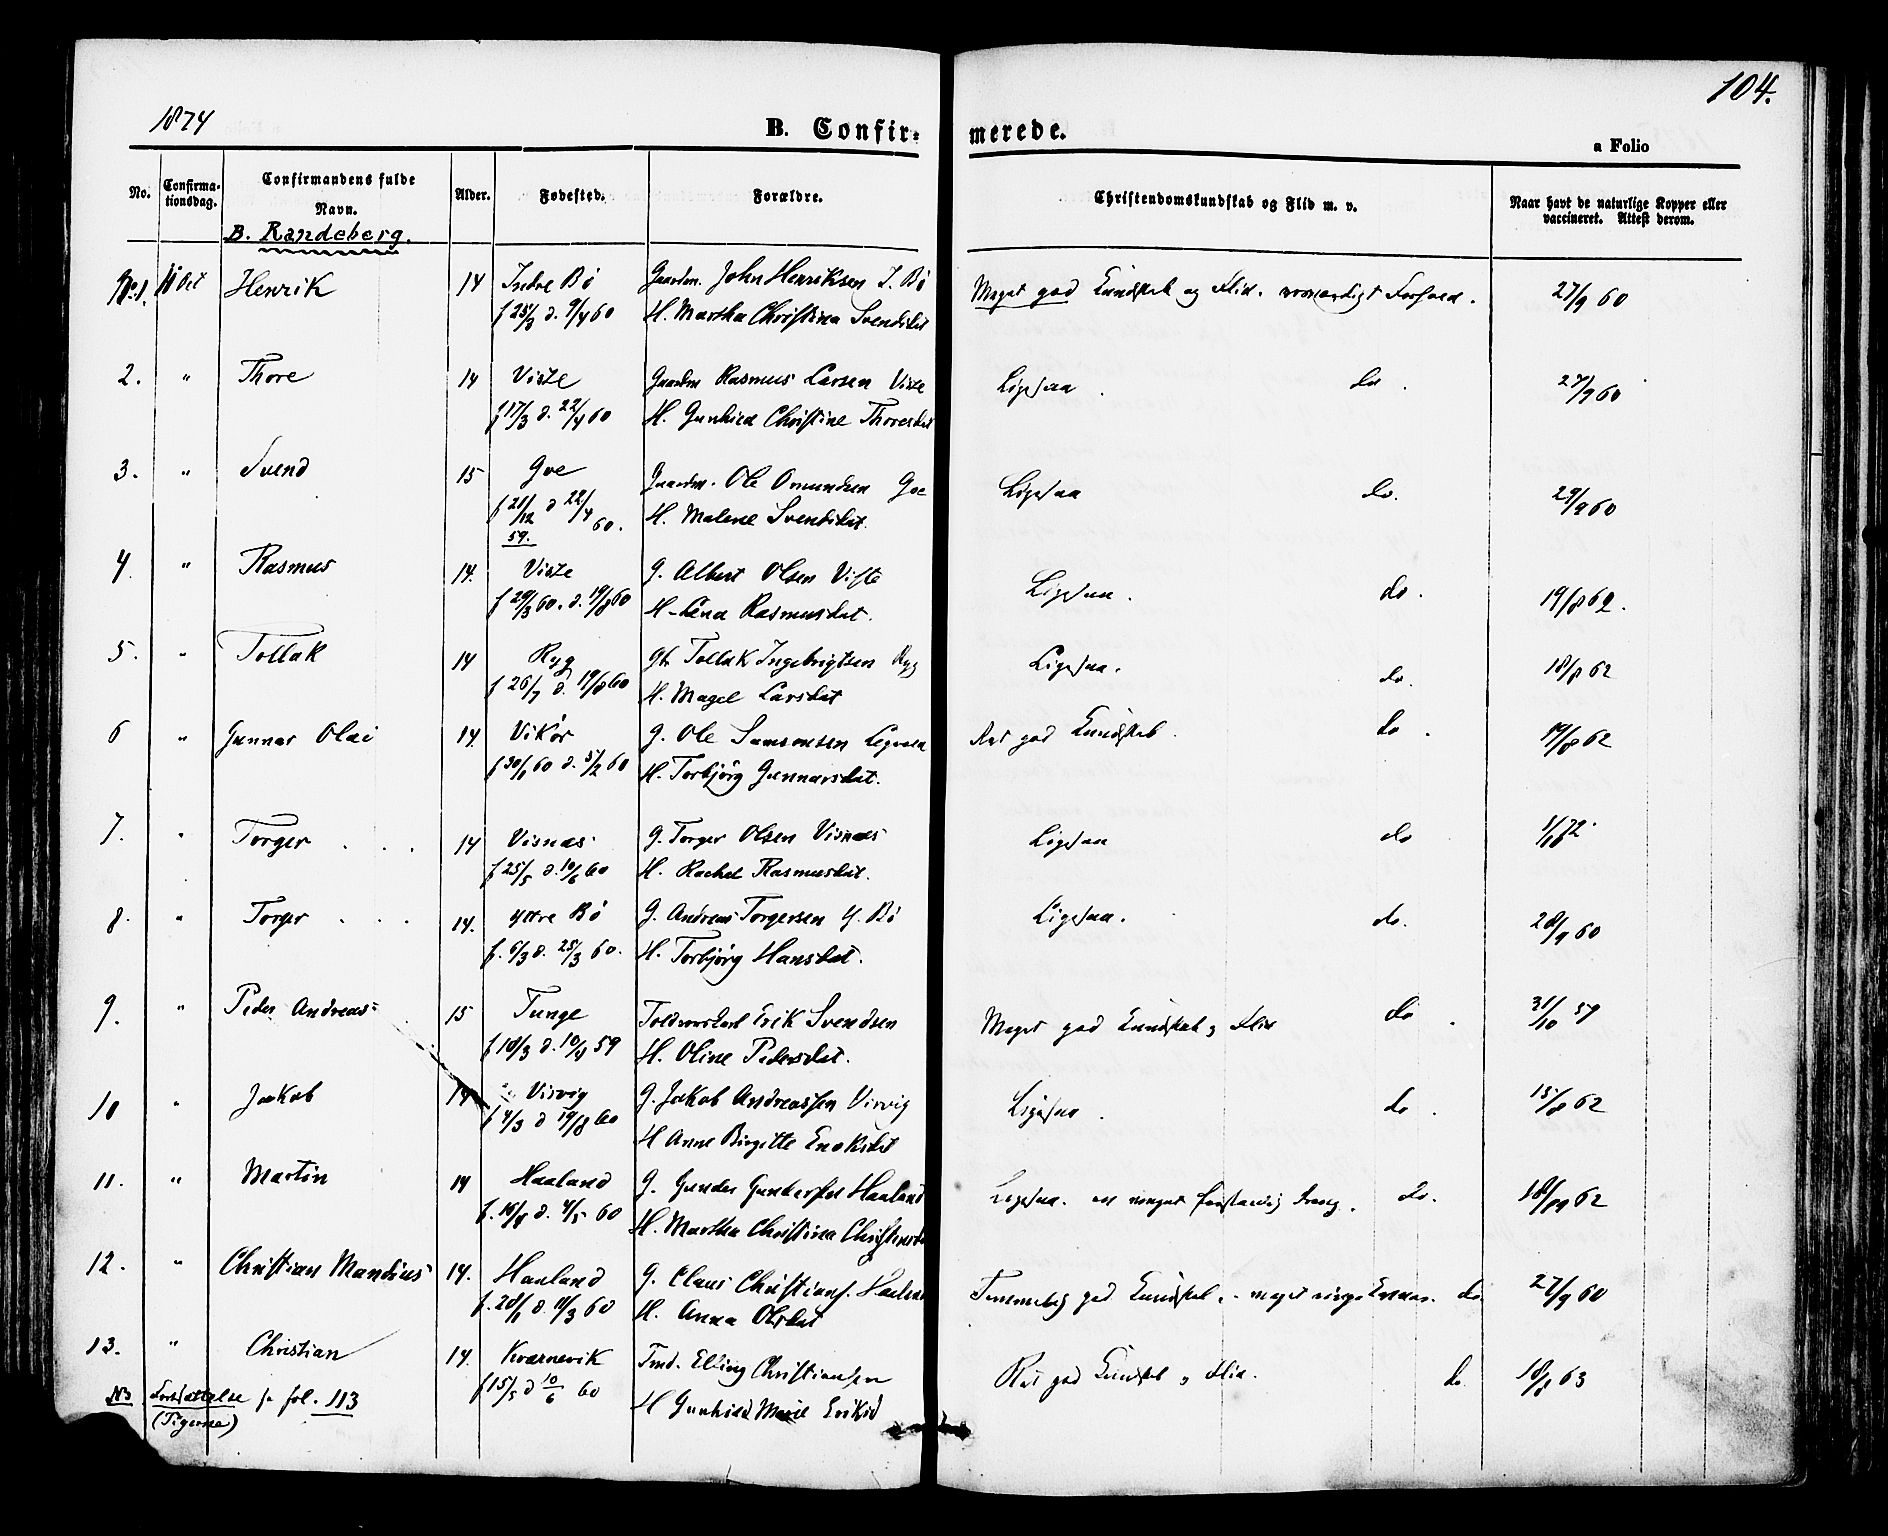 1874
104.
B. Confir- merede.
a Folio
No.
Confirma-
tionsdag.
Confirmandens fulde
Navn.
Alder.
Fødested.
Forældre.
Christendomskundskab og Flid m. v.
Naar havt de naturlige Kopper eller
vaccineret. Attest derom.
B. Randeberg.
No 1. Oct Henrik 14 Indre Bö Gaardm. John Henriksen I. Bö Meget god Kundskab og Flid. Forhold. 27/9 60
f 25/3 d. 9/4 60 H. Martha Christina Svendsdat
2. " Thore 14 Viste Gaardm Rasmus Larsen Viste Ligesaa do. 27/9 60
f 17/3 d. 22/4 60 H. Gunhild Christine Thoresdat
3. " Svend 15 Goe Gaardm. Ole Omundsen Goe Ligesaa do. 29/9 60
f 21/12 59. d 22/4 60. H. Malene Svendsdat
4. " Rasmus 14. Viste G. Albert Olsen Viste Ligesaa. do. 19/8 62.
f 20/3 60. d. 19/8 60 H. Lena Rasmusdat.
5. " Tollak 14 Ryg Tollak Ingebrigtsen Ryg Ligesaa. do. 18/8 62
f 26/7 d. 19/8 60 H. Magel Larsdat
6 " Gunnar Olai 14. Vikör G. Ole Samsonsen Ret god Kundskab. do. 19/8 62
f 30/1 60 d. 5/2 60 H. Torbjörg Gunnarsdat.
7. " Torger 14 Visnæs G. Torger Olsen Visnæs Ligesaa do
f 25/5 d. 10/6 60 H. Rachel Rasmusdat.
8. " Torger 14. Ytre Bö G. Andreas Torgersen Y. Bö Ligesaa. do. 28/9 60
f. 6/3 d. 25/3 60. H. Torbjörg Hansdat.
9. " Peder Andreas 15 Tunge Erik Svendsen Meget god Kundskab og Flid do. 31/10 59
f 18/3 d. 10/4 59 H. Oline Pedersdat.
10 " Jakob 14 Virvig G. Jakob Andreassen Virvig Ligesaa. do. 15/8 62
f 4/3 d 19/8 60 H Anne Birgitte Enoksdat
11. " Martin 14 Haaland G. Gunder Gundersen Haaland Ligesaa. en meget forstandig Dreng. do. 62
d. 4/5 60 H. Martha Christina
12. " Christian Mandius 14. Haaland G. Claus Christians. Temmelig god Kundskab, do. 27/9 60
f. 28/1 d. 11/3 60 H. Anna Olsdat
13. " Christian 14. Kværnevik Elling Christiansen Ret god Kundskab og Flid. do. 18/8 63
f 15/5 d 10/6 60 H Gunhild Marie Eriksd
NB Fortsættelse se fol. 113
(Pigerne)